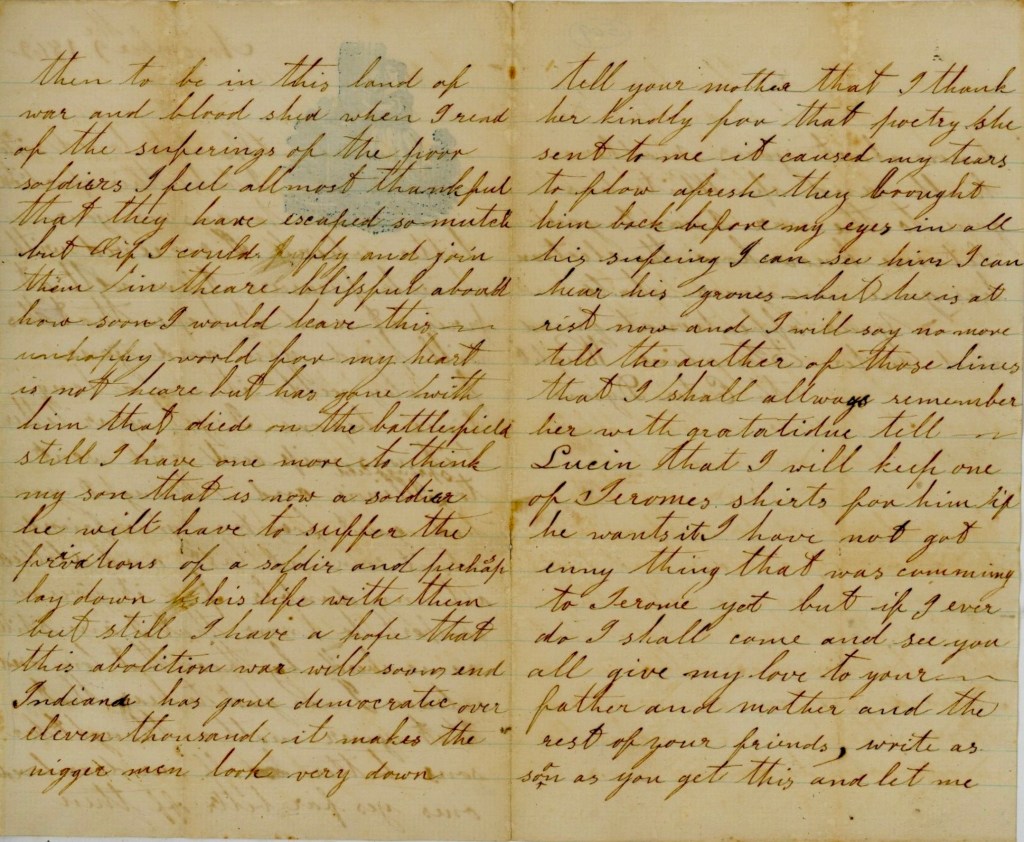 then to be in this land of
war and blood shed when I read
of the suferings of the poor
soldiers I feel allmost thankful
that they have escaped so mutch
but if I could fly and join
them in theare blissful aboad
how soon I would leave this
unhappy world for my heart
is not heare but has gone with
him that died on the battlefield
still I have one more to think
my son that is now a soldier
he will have to suffer the
privations of a soldir and perhaps
lay down his life with them
but still I have a hope that
this abolition war will soon end
Indiana has gone democratic over
eleven thousand it makes the
nigger men look very down
tell your mother that I thank
her kindly for that poetry she
sent to me it caused my tears
to flow afresh they brought
him back before my eyes in all
his sufeing I can see him I can
hear his grones but he is at
rest now and I will say no more
tell the auther of those lines
that I shall allways remember
her with gratatidue tell
Lucin that I will keep one
of Jeromes shirts for him if
he wants it I have not got
enny thing that was comming
to Jerome yet but if I ever
do I shall come and see you
all give my love to your
father and mother and the
rest of your friends, write as
soon as you get this and let me